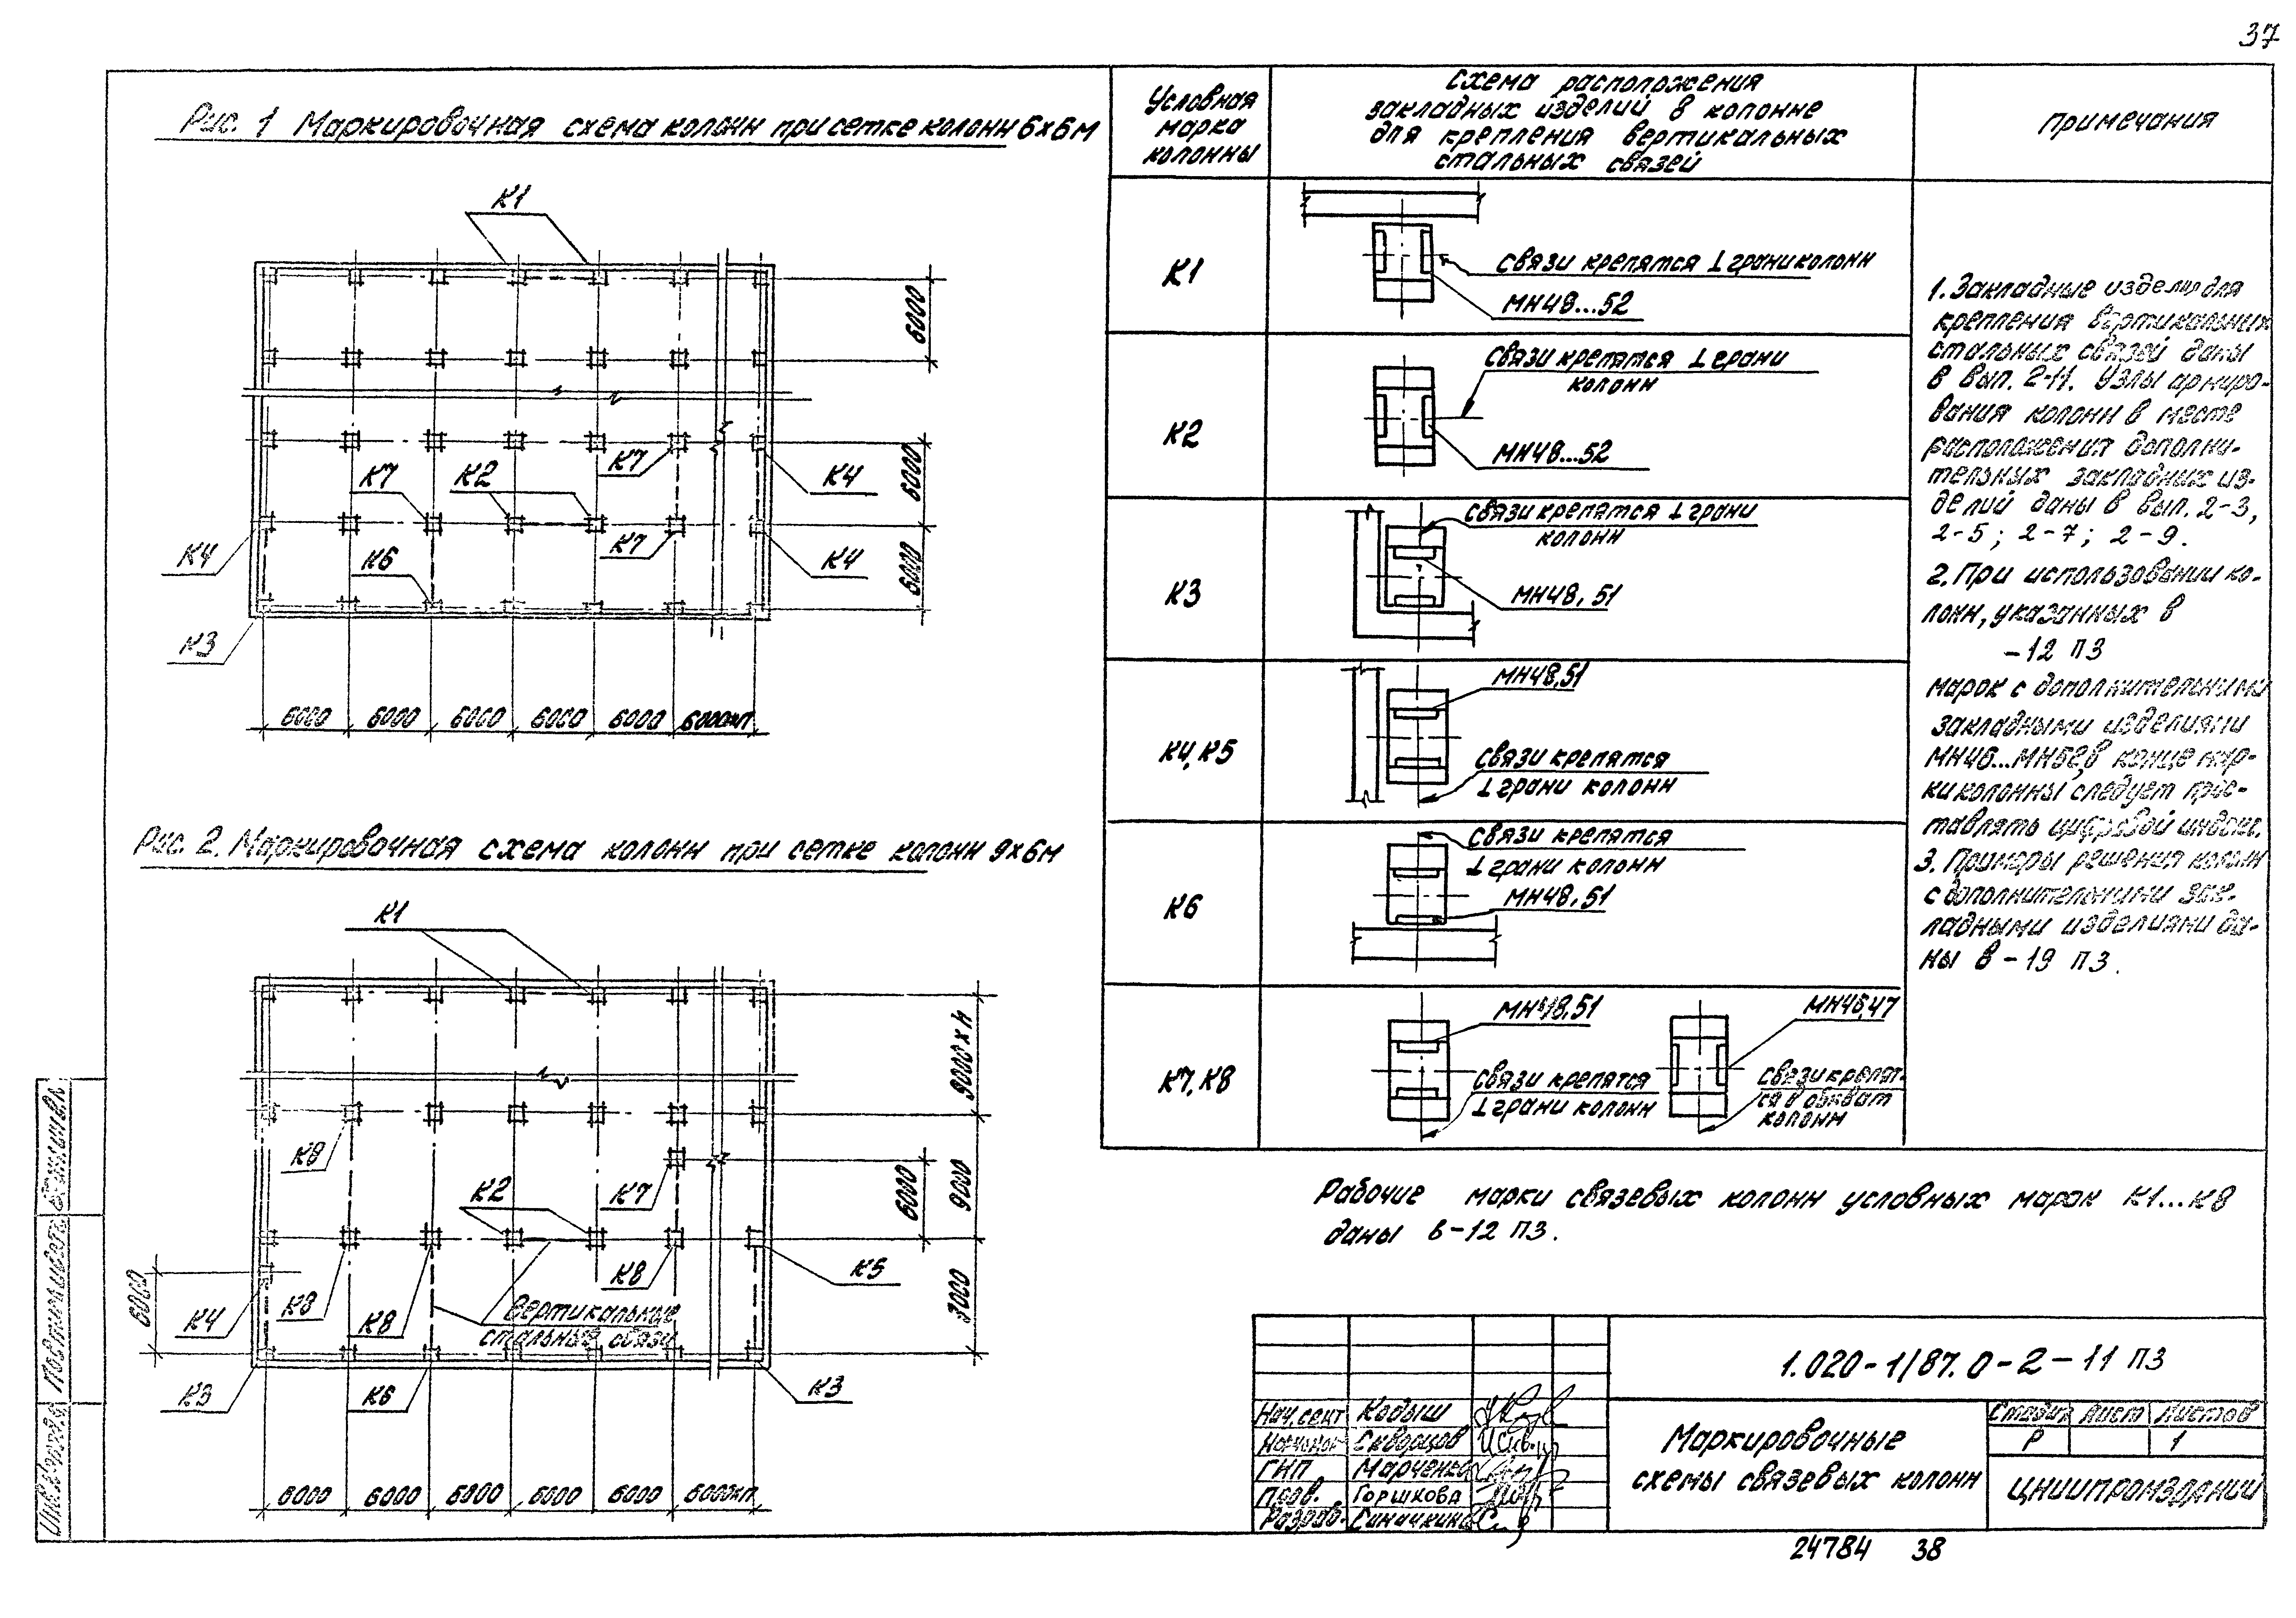 37
Рис. 1 Маркировочная схема колонн при сетке колонн 6х6м
К1
6000
К7
К4
К7
К2
6000
К4
К6
К7
К4
6000
К3
6000 6000 6000 6000 6000 6000хп
Рис. 2. Маркировочная схема колонн при сетке колонн 9х6м
К1
9000хн
К8
К2
К7
6000
9000
6000
К4
К8
К8
К8
К5
Вертикальные
стальные связи
3000
К3
К6
К3
6000 6000 6000 6000 6000 6000хп
Условная
марка
колонны
Схема расположения
закладных изделий в колонне
для крепления вертикальных
стальных связей
Примечания
К1
связи крепятся ⊥ грани колонн
МН48...52
К2
связи крепятся ⊥ грани
колонн
МН48...52
К3
связи крепятся ⊥ грани
колонн
МН48, 51
К4, К5
МН48,51
связи крепятся
⊥ грани колонн
К6
связи крепятся
⊥ грани колонн
МН48, 51
К7, К8
МН48,51
связи крепятся
⊥ грани колонн
МН46,47
связи крепят-
ся в обхват
колонн
1. Закладные изделия для
крепления вертикальных
стальных связей даны
в вып. 2-11. Узлы армиро-
вания колонн в месте
расположения дополни-
тельных закладных из-
делий даны в вып. 2-3,
2-5; 2-7; 2-9.
2. При использовании ко-
лонн, указанных в
-12 ПЗ
марок с дополнительными
закладными изделиями
МН46...МН52, в конце мар-
ки колонны следует прос-
тавлять цифровой индекс.
3. Примеры решения колонн
с дополнительными зак-
ладными изделиями да-
ны в -19 ПЗ.
Рабочие марки связевых колонн условных марок К1...К8
даны в -12 ПЗ.
1.020-1/87. 0-2-11 ПЗ
Нач.сект Кодыш
Скворцов
ГИП Марченко
Пров. Горшкова
Разраб. Синичкина
Маркировочные
схемы связевых колонн
Стадия Лист Листов
Р 1
ЦНИИПРОМЗДАНИЙ
24784 38